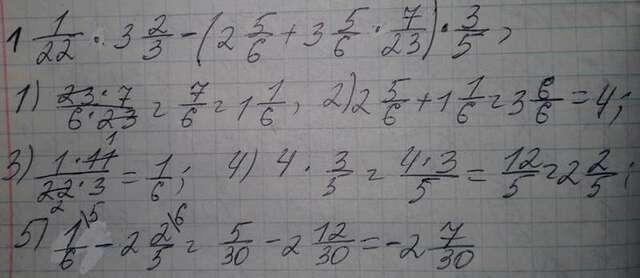 1 1/22 · 3 2/3 - (2 5/6 + 3 5/6 · 7/23) · 3/5,
1) 23·7/6·23 = 7/6 = 1 1/6, 2) 2 5/6 + 1 1/6 = 3 6/6 = 4;
3) 1·11/22·3 = 1/6; 4) 4 · 3/5 = 4·3/5 = 12/5 = 2 2/5;
5) 1/6 \5 - 2 2/5 \6 = 5/30 - 2 12/30 = -2 7/30